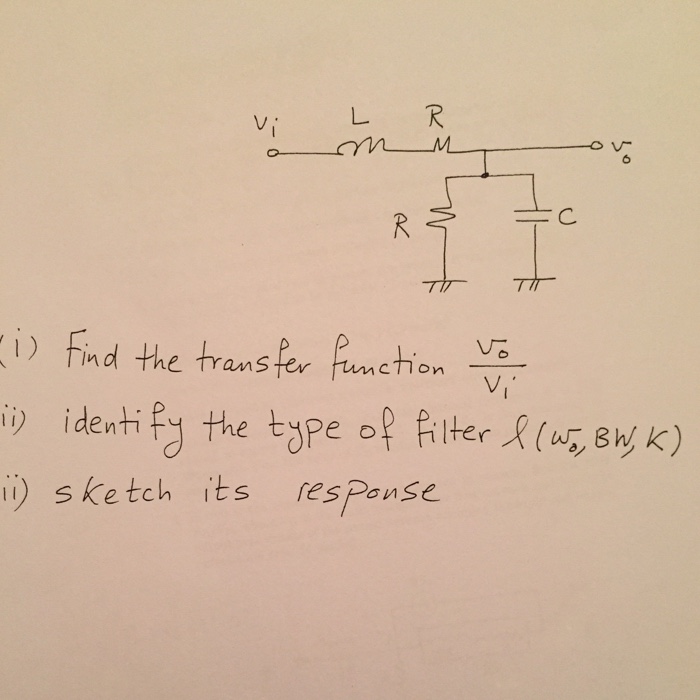 Vi L R
Vo
R C
(i) Find the transfer function Vo/Vi
ii) identify the type of filter & (ω₀, BW, K)
ii) sketch its response